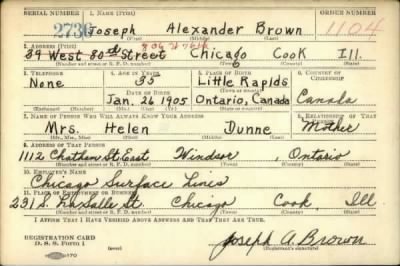 SERIAL NUMBER 1. NAME (Print) ORDER NUMBER
2736 Joseph Alexander Brown 1104
(First) (Middle) (Last)
2. ADDRESS (Print)
39 West 80th Street Chicago Cook Ill.
(Number and street or R. F. D. number) (Town) (County) (State)
3. TELEPHONE 4. AGE IN YEARS 5. PLACE OF BIRTH 6. COUNTRY OF CITIZENSHIP
None 35 Little Rapids
DATE OF BIRTH (Town or county)
Jan. 26 1905 Ontario, Canada Canada
(Exchange) (Number) (Mo.) (Day) (Yr.) (State or country)
7. NAME OF PERSON WHO WILL ALWAYS KNOW YOUR ADDRESS 8. RELATIONSHIP OF THAT PERSON
Mrs. Helen Dunne Mother
(Mr., Mrs., Miss) (First) (Middle) (Last)
9. ADDRESS OF THAT PERSON
1112 Chatham St. East Windsor, Ontario
(Number and street or R. F. D. number) (Town) (County) (State)
10. EMPLOYER'S NAME
Chicago Surface Lines
11. PLACE OF EMPLOYMENT OR BUSINESS
231 S. LaSalle St. Chicago Cook, Ill
(Number and street or R. F. D. number) (Town) (County) (State)
I AFFIRM THAT I HAVE VERIFIED ABOVE ANSWERS AND THAT THEY ARE TRUE.
REGISTRATION CARD
D. S. S. Form 1 Joseph A. Brown
(Registrant's signature)